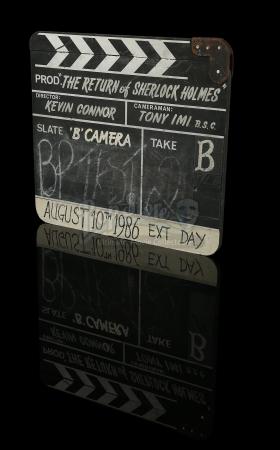 PROD. "THE RETURN OF SHERLOCK HOLMES"
DIRECTOR: CAMERAMAN:
KEVIN CONNOR TONY IMI B.S.C.
SLATE "B" CAMERA TAKE
B
AUGUST 10TH 1986 EXT DAY